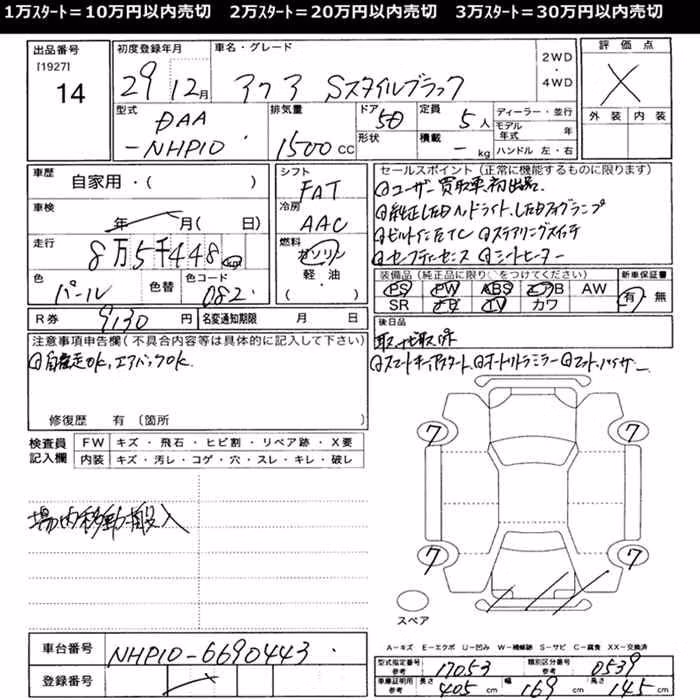 1万ｽﾀｰﾄ＝10万円以内売切　2万ｽﾀｰﾄ＝20万円以内売切　3万ｽﾀｰﾄ＝30万円以内売切
出品番号
[1927]
14
初度登録年月
29 12月
車名・グレード
アクア Sスタイルブラック
2WD・4WD
評価点
X
外装 内装
型式
DAA
-NHP10
排気量
1500CC
ドア 5D
形状
定員 5人
積載 - kg
ディーラー・並行
モデル年式 年
ハンドル 左・右
車歴
自家用・( )
車検
年 月( 日)
走行
8万5千448km
色
パール
色替
色コード
082
R券 9130円
名変通知期限 月 日
シフト
FAT
冷房
AAC
燃料
ガソリン
軽・油
( )
セールスポイント(正常に機能するものに限ります)
ユーザー買取車、初出品。
純正LEDヘッドライト、LEDフォグランプ
ビルトインETC ステアリングスイッチ
セーフティーセンス シートヒーター
装備品(純正品に限り○をつけてください)
PS PW ABS エアB AW
SR ナビ TV カワ
新車保証書
有・無
後日品
取、ナビ取、保
スマートキー、Pスタート、オートリトラミラー
注意事項申告欄(不具合内容等は具体的に記入して下さい)
自走OK、エアバックOK。
修復歴 有(箇所 )
検査員記入欄
FW キズ・飛石・ヒビ割・リペア跡・X要
内装 キズ・汚レ・コゲ・穴・スレ・キレ・破レ
場内移動搬入
7 7
7 7
スペア
A－キズ E－エクボ U－凹み W－補修跡 S－サビ C－腐食 XX－交換済
車台番号 NHP10-6690443
登録番号
型式指定番号 参考 17053 類別区分番号 参考 0539
車庫証明用 参考 長さ 405cm 幅 169cm 高さ 145cm